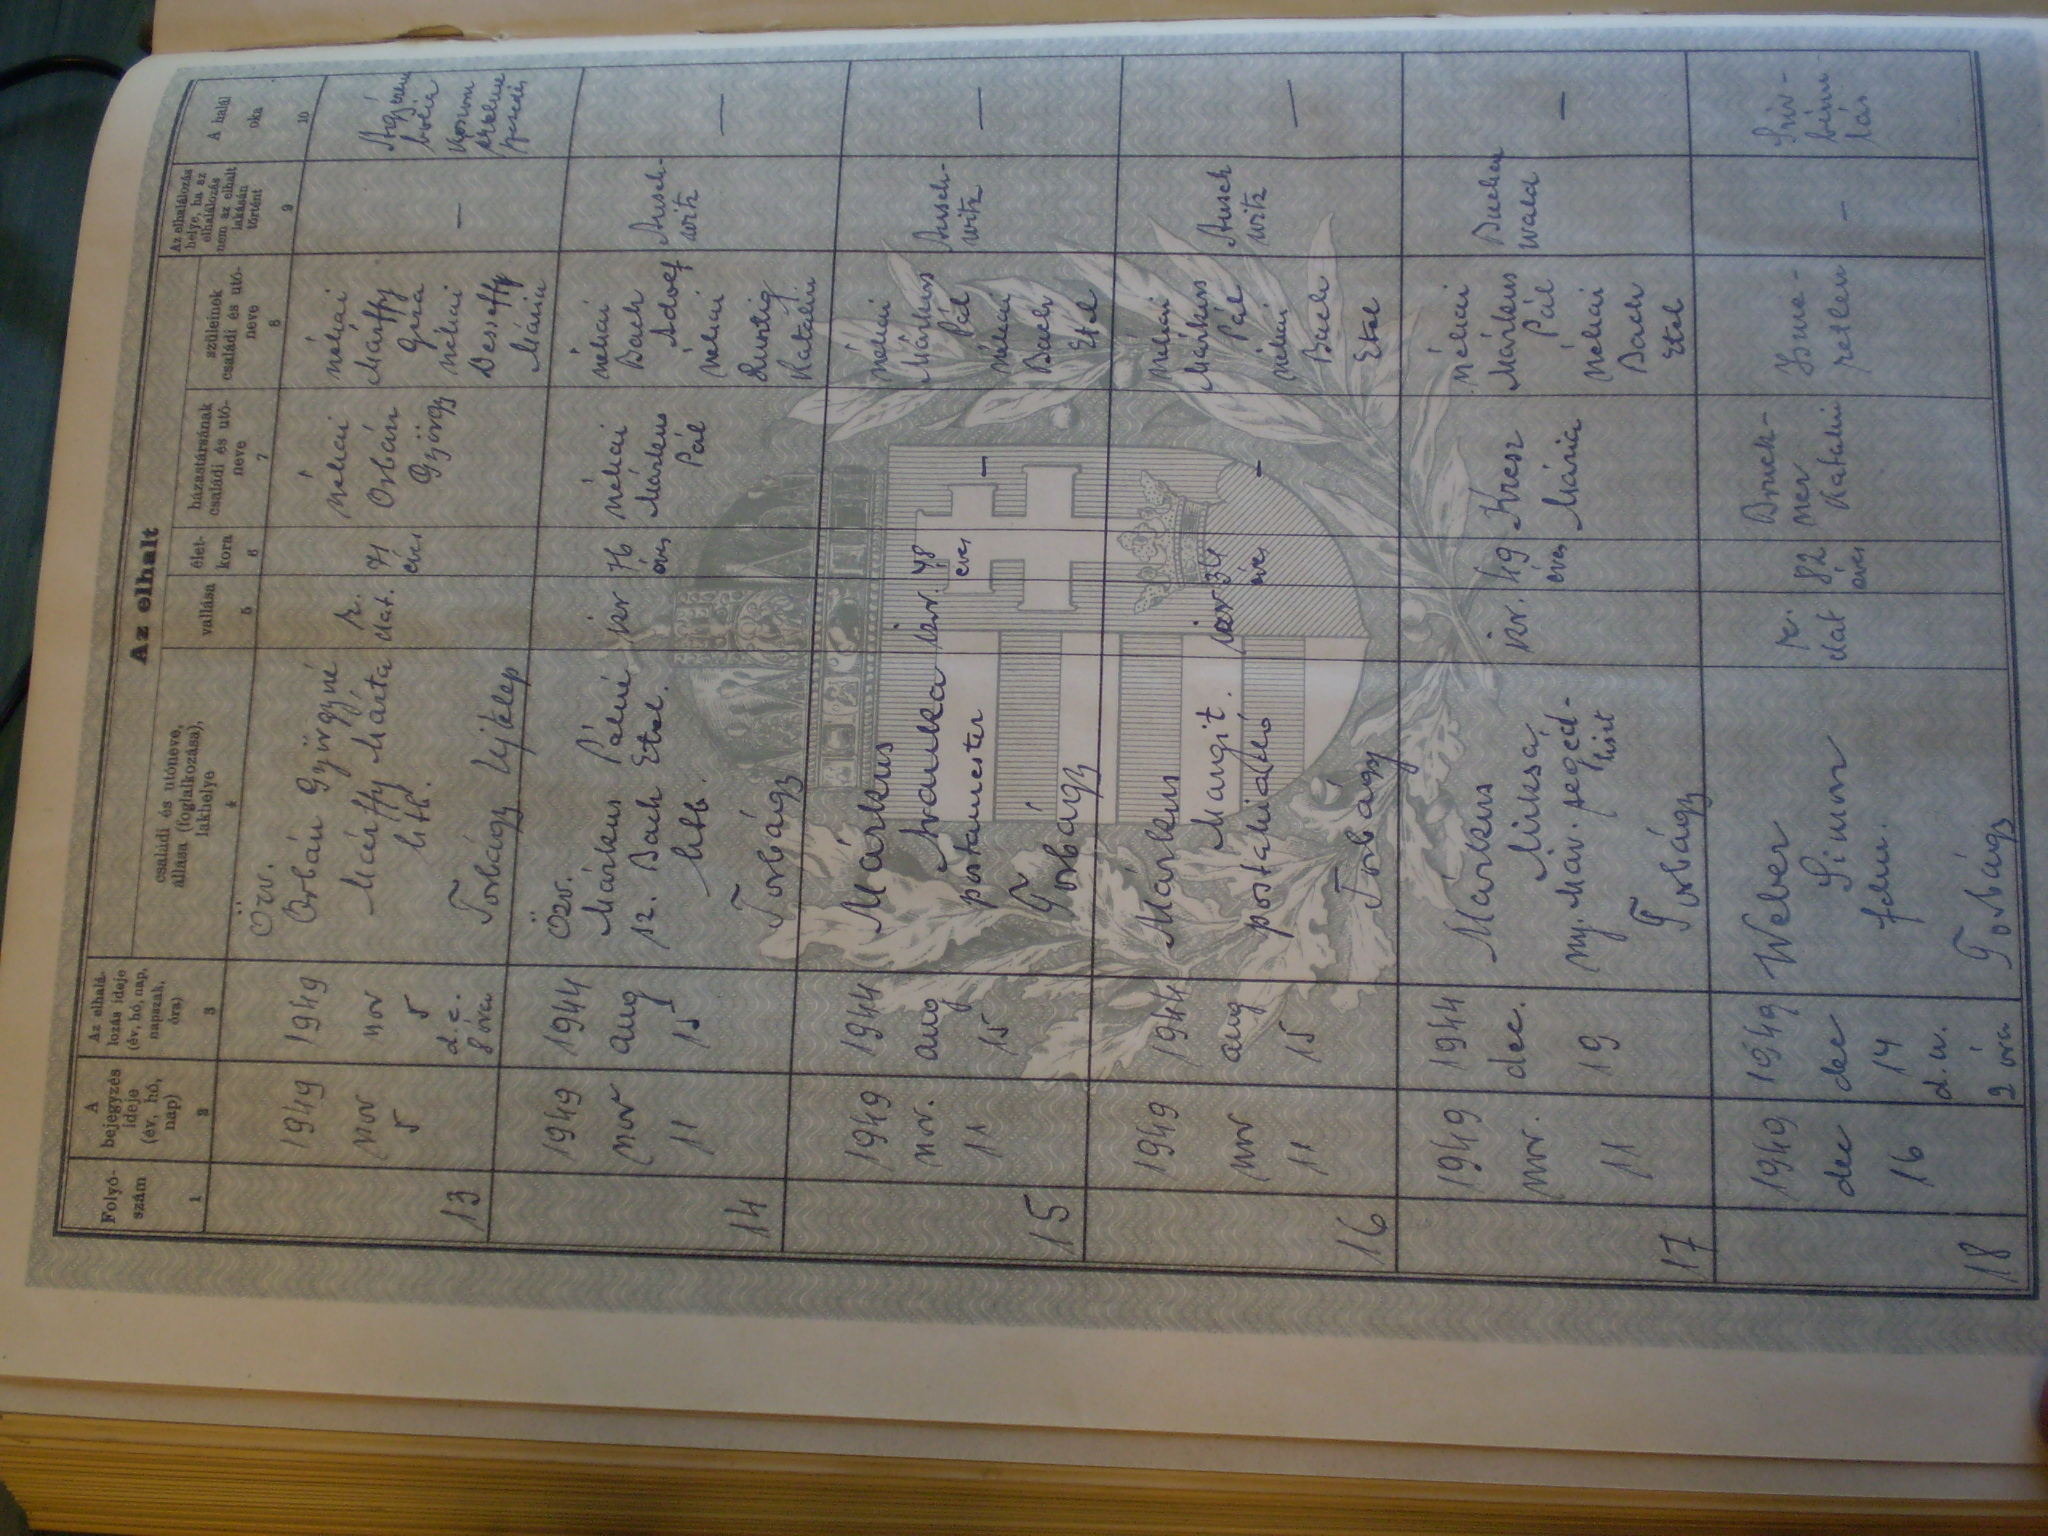 Az elhalt
Folyó-
szám
A
bejegyzés
ideje
(év, hó,
nap)
Az elhalá-
lozás ideje
(év, hó, nap,
napszak,
óra)
családi és utóneve,
állása (foglalkozása),
lakhelye
vallása
élet-
kora
házastársának
családi és utó-
neve
szüleinek
családi és utó-
neve
Az elhalálozás
helye, ha az
elhalálozás
nem az elhalt
lakásán
történt
A halál
oka
1
2
3
4
5
6
7
8
9
10
13
1949
nov
5
1949
nov
5
d. e.
8 óra
Özv.
Orbán Györgyné
Márffy Márta
htb.
Torbágy Ujtelep
r.
kat.
71
éves
néhai
Orbán
György
néhai
Márffy
Géza
néhai
Desseffy
Mária
—
14
1949
nov
11
1944
aug
15
Özv.
Márkus Pálné
sz. Bach Etel.
htb.
Torbágy
izr
76
éves
néhai
Márkus
Pál
néhai
Bach
Adolf
néhai
Katalin
Ausch-
witz
—
15
1949
nov.
11
1944
aug
15
Márkus
Ivanka
postamester
Torbágy
izr.
48
éves
—
néhai
Márkus
Pál
néhai
Bach
Etel
Ausch-
witz
—
16
1949
nov
11
1944
aug
15
Márkus
Margit.
postakiadó
Torbágy
izr
34
éves
—
néhai
Márkus
Pál
néhai
Bach
Etel
Ausch
witz
—
17
1949
nov.
11
1944
dec.
19
Márkus
Miksa
ny. Máv. segéd-
tiszt
Torbágy
izr.
49
éves
Kresz
Mária
néhai
Márkus
Pál
néhai
Bach
Etel
Buchen
wald
—
18
1949
dec
16
1949
dec
14
d. u.
2 óra
Weber
Simon
földm.
Torbágy
r.
kat
82
éves
Bruck-
ner
Katalin
Isme-
retlen
—
Szív-
bénu-
lás